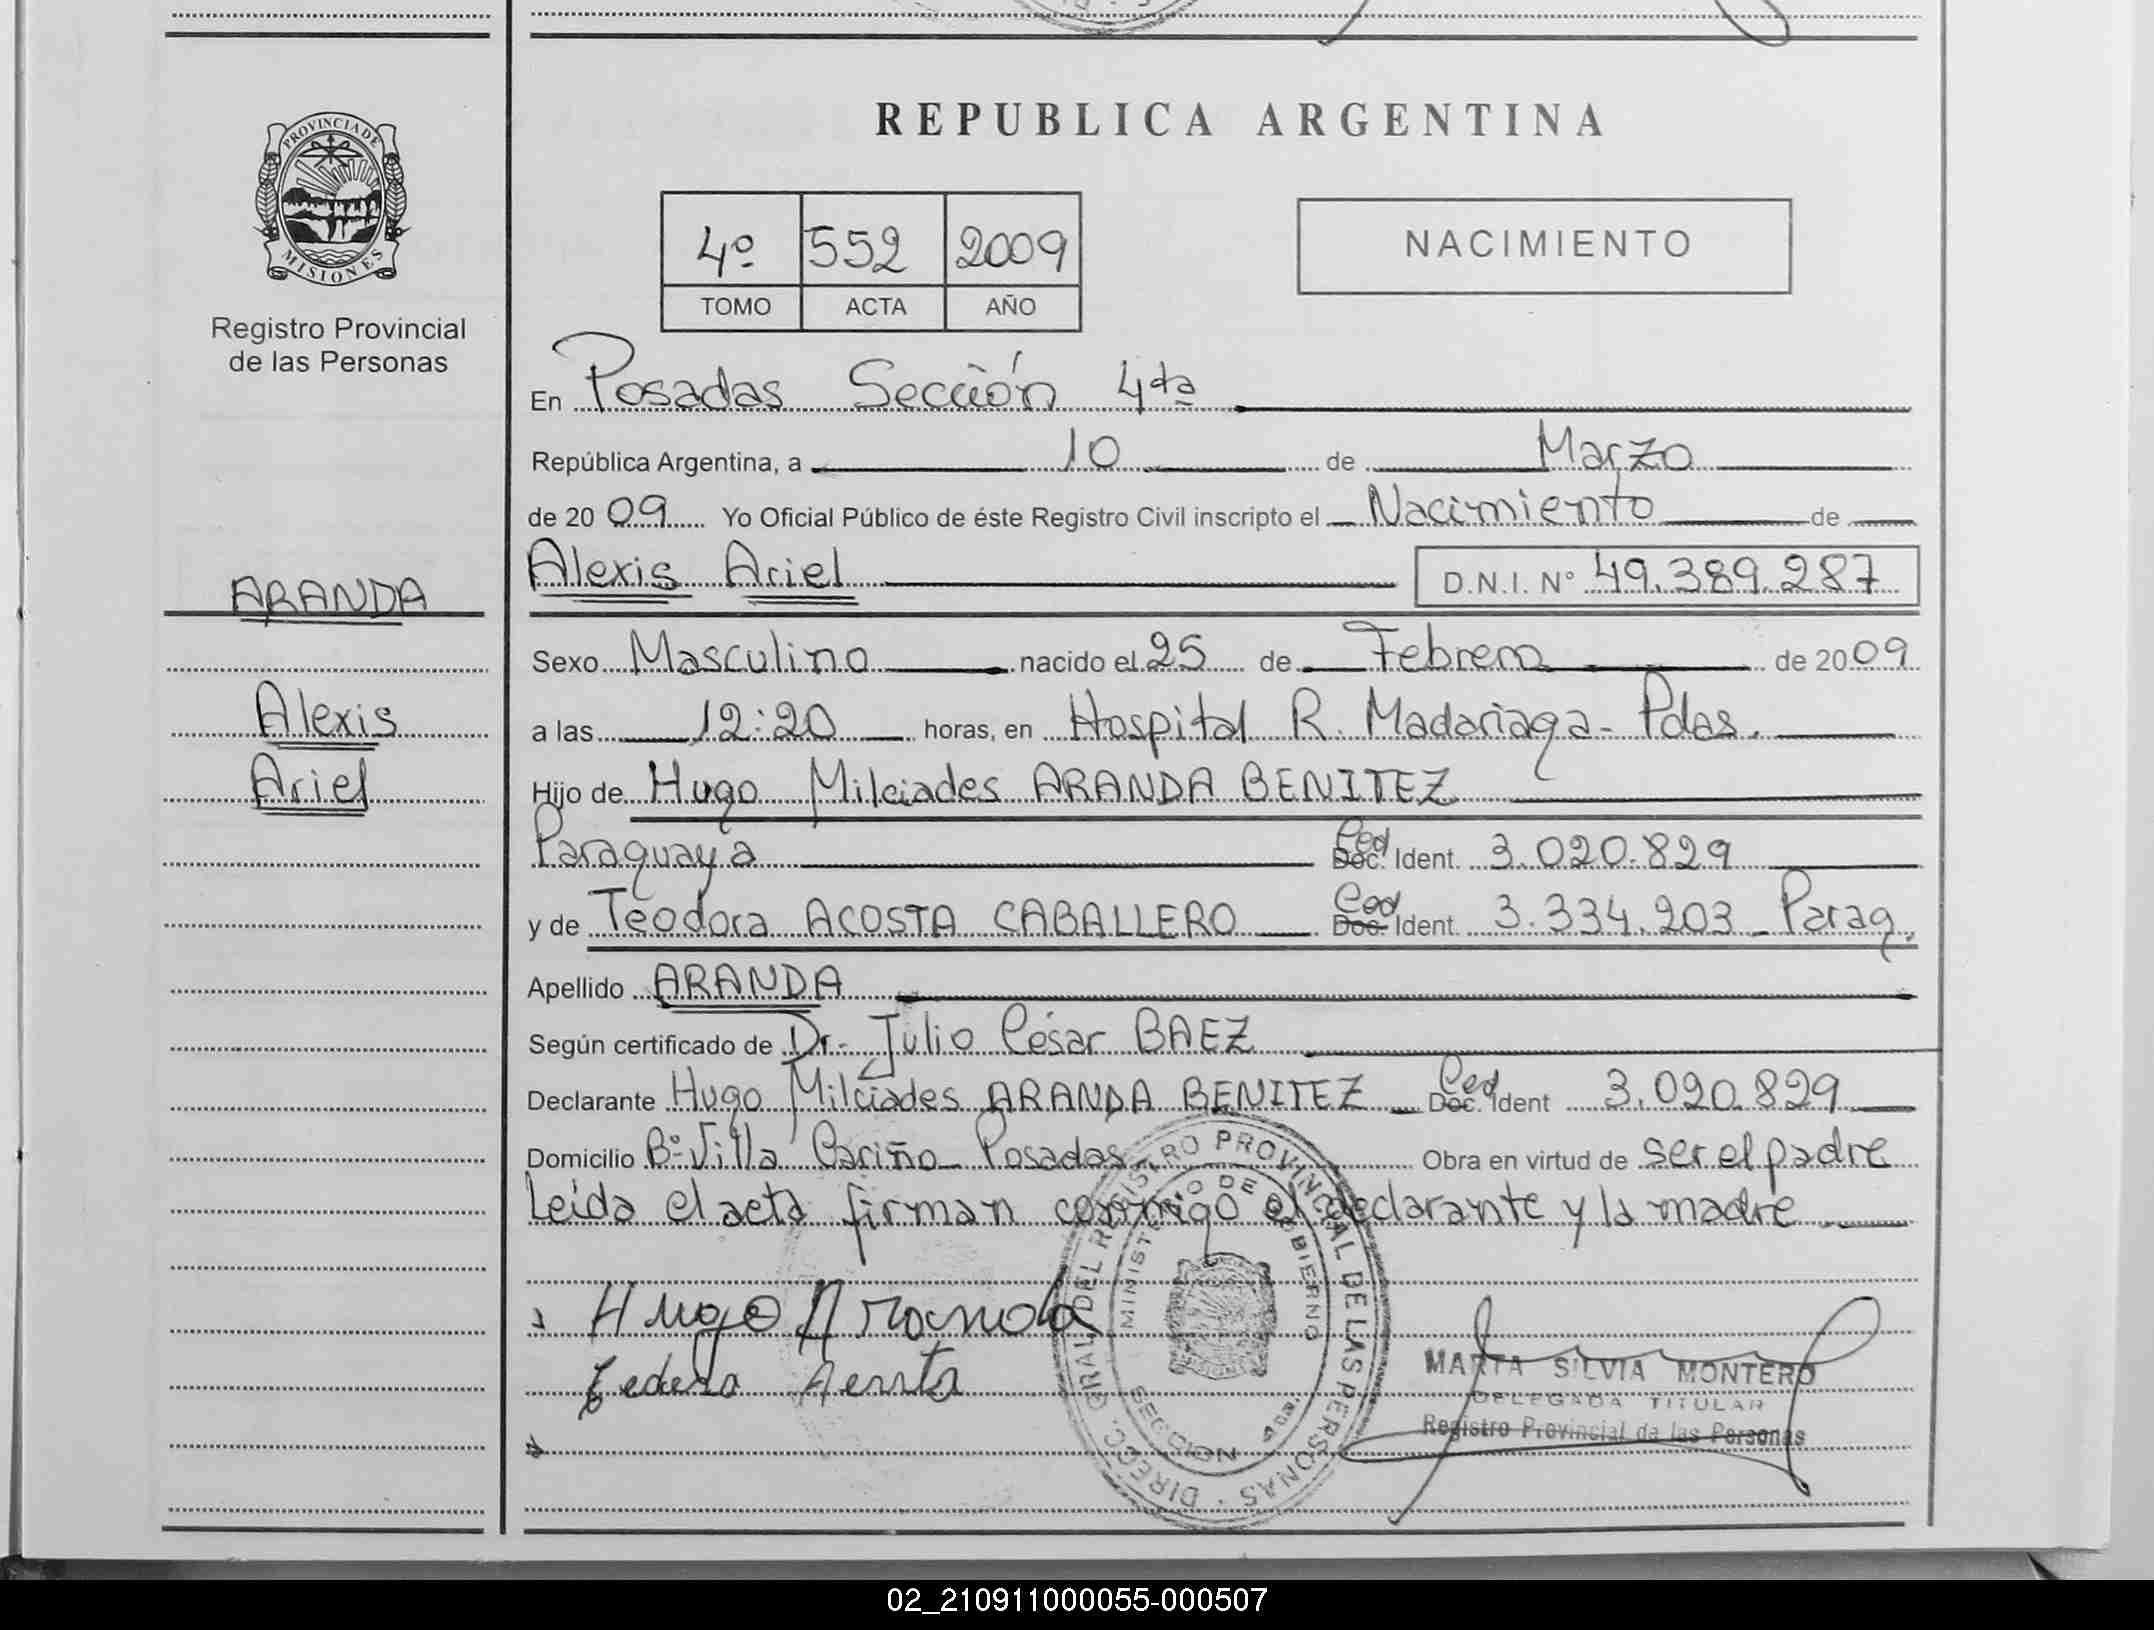 PROVINCIA DE
MISIONES
Registro Provincial
de las Personas
ARANDA
Alexis
Ariel
REPUBLICA ARGENTINA
4º 552 2009
TOMO ACTA AÑO
NACIMIENTO
En Posadas Sección 4ta
República Argentina, a 10 de Marzo
de 20 09 Yo Oficial Público de éste Registro Civil inscripto el Nacimiento de
Alexis Ariel D.N.I. N° 49.389.287
Sexo Masculino nacido el 25 de Febrero de 20 09
a las 12:20 horas, en Hospital R. Madariaga - Pdas.
Hijo de Hugo Milciades ARANDA BENITEZ
Paraguaya Ced Doc. Ident. 3.020.829
y de Teodora ACOSTA CABALLERO Ced Doc. Ident. 3.334.203 - Parag.
Apellido ARANDA
Según certificado de Dr. Julio César BAEZ
Declarante Hugo Milciades ARANDA BENITEZ Ced Doc. Ident 3.020.829
Domicilio Bº Villa Cariño - Posadas Obra en virtud de ser el padre
Leída el acta firman conmigo el declarante y la madre
Hugo Aranda
DIRECC. GRAL. DEL REGISTRO PROVINCIAL DE LAS PERSONAS
MINISTERIO DE GOBIERNO
MARTA SILVIA MONTERO
DELEGADA TITULAR
Registro Provincial de las Personas
02_210911000055-000507